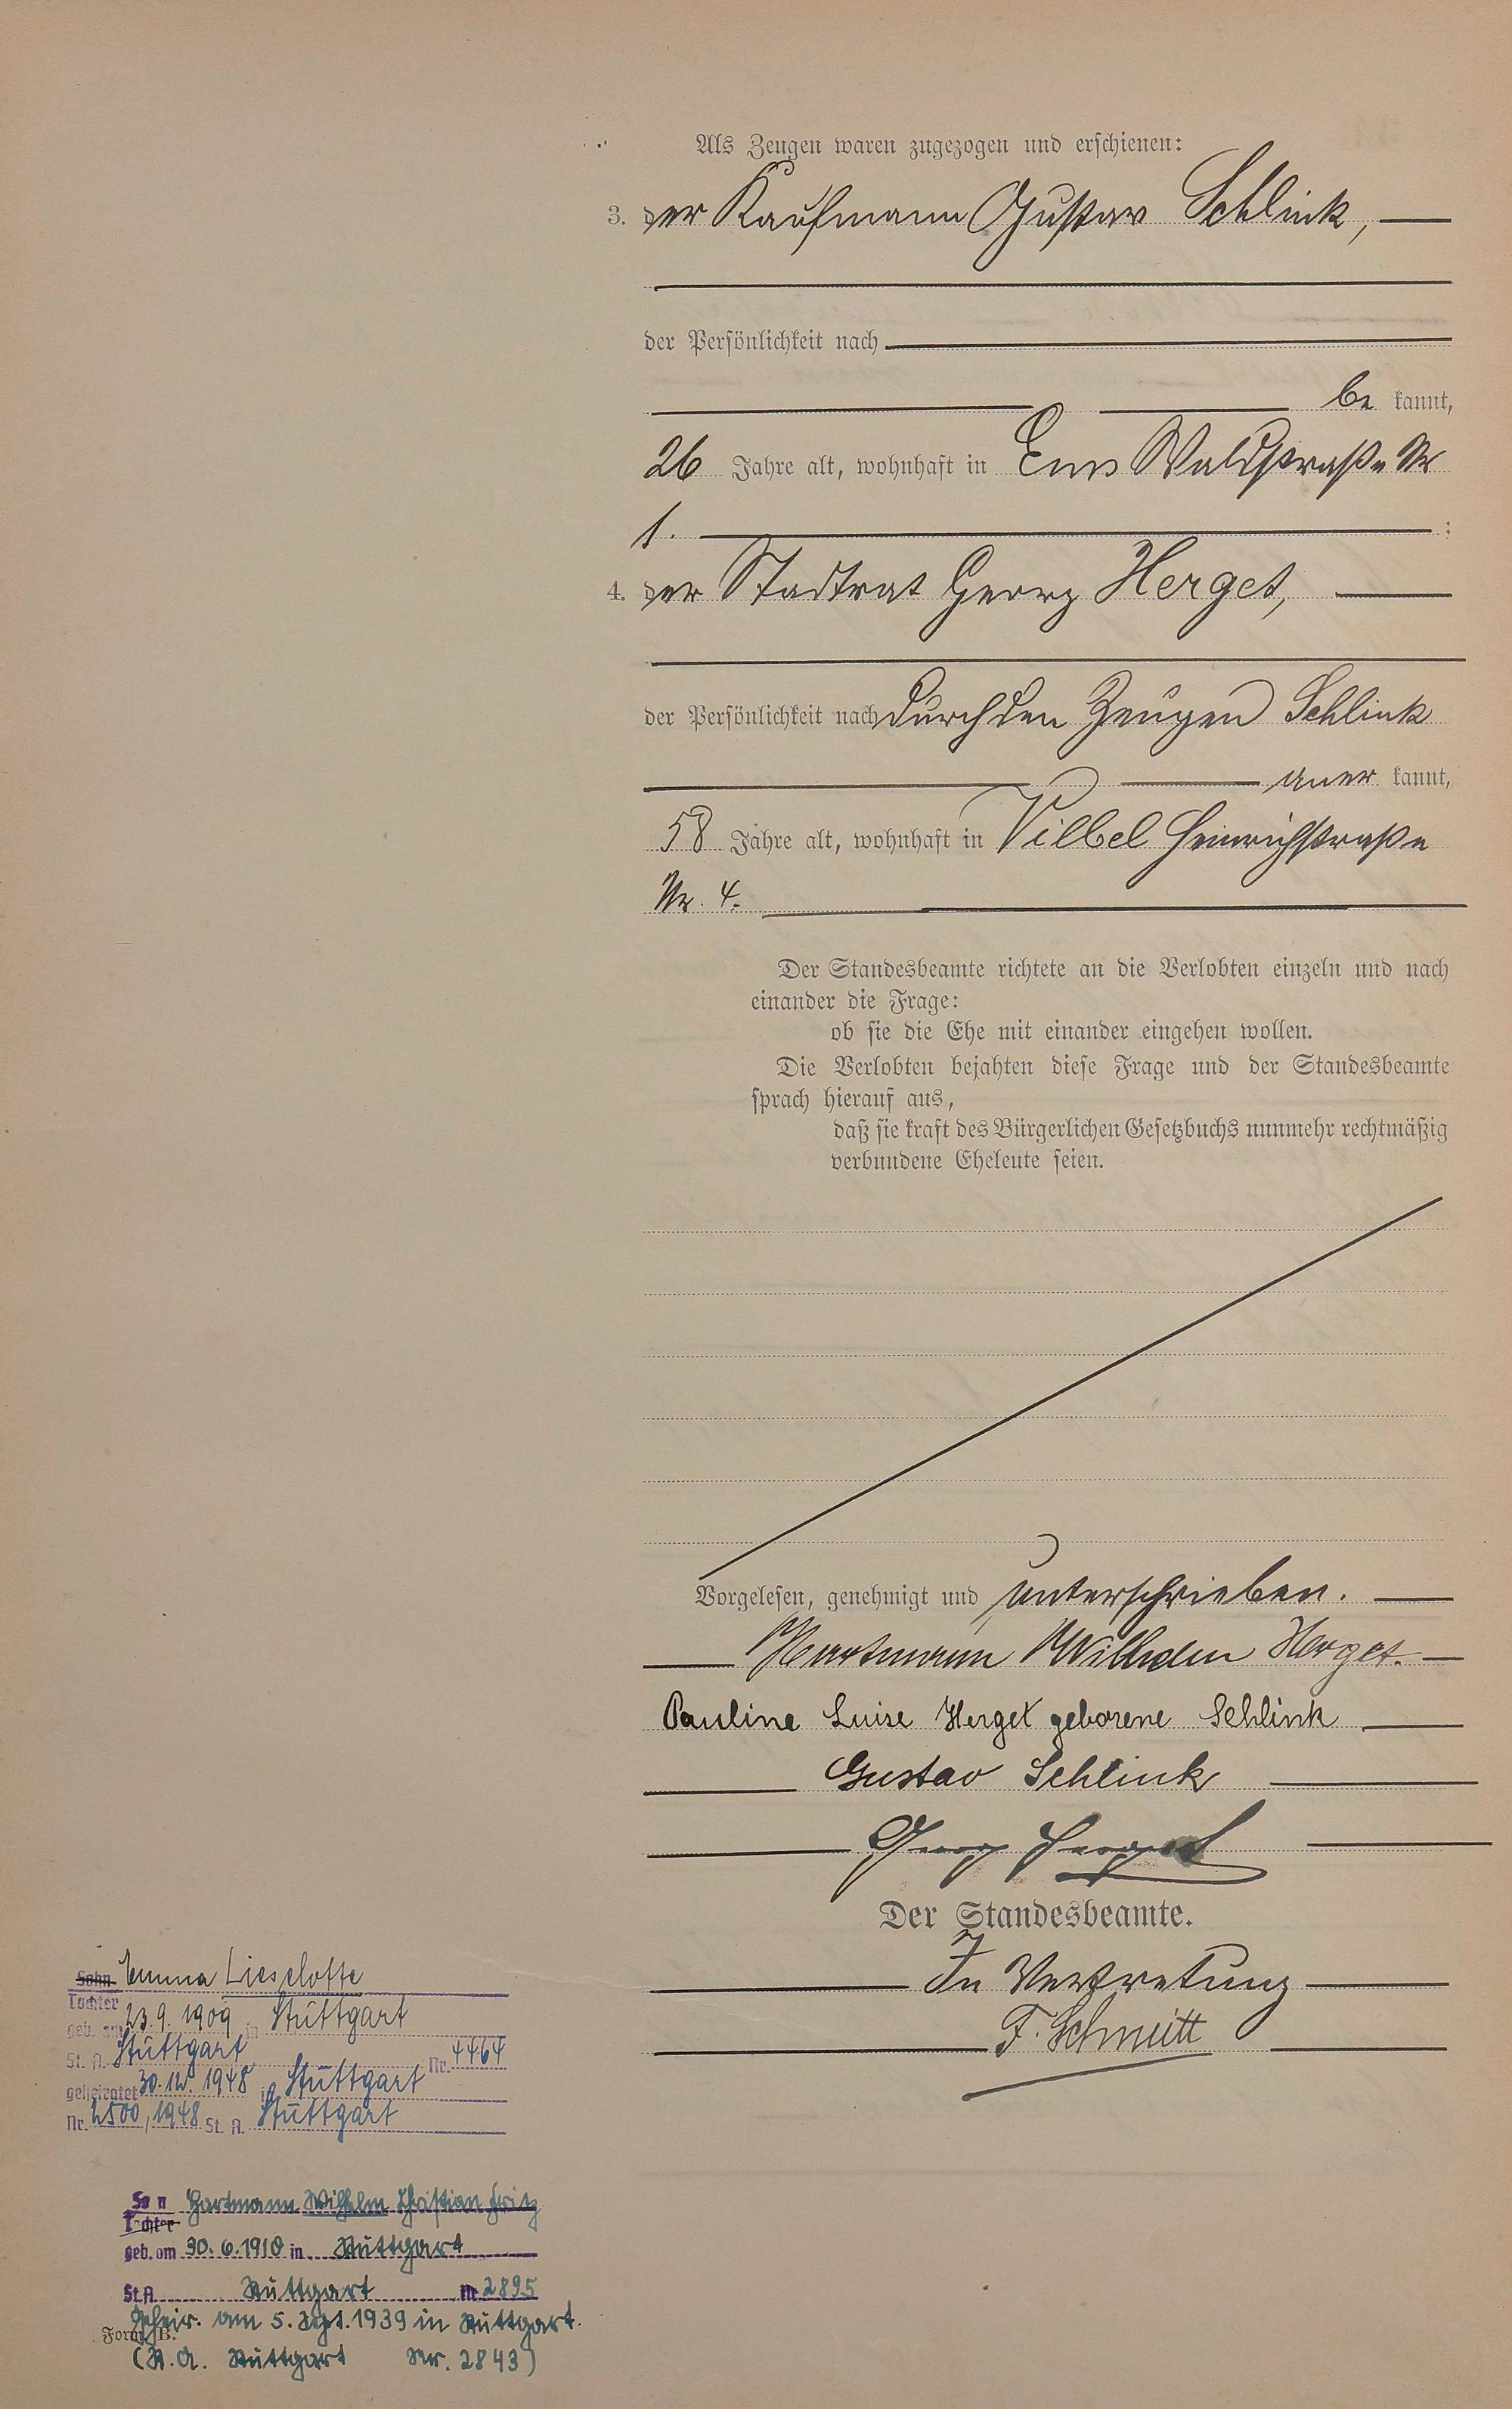 Als Zeugen waren zugezogen und erschienen:
3. der Kaufmann Gustav Schlink,
der Persönlichkeit nach
be kannt,
26 Jahre alt, wohnhaft in Ems Waldstraße Nr
1. ;
4. der Stadtrat Georg Herget,
der Persönlichkeit nach durch den Zeugen Schlink
aner kannt,
58 Jahre alt, wohnhaft in Vilbel Heinrichstraße
Nr. 4.
Der Standesbeamte richtete an die Verlobten einzeln und nach
einander die Frage:
ob sie die Ehe mit einander eingehen wollen.
Die Verlobten bejahten diese Frage und der Standesbeamte
sprach hierauf aus,
daß sie kraft des Bürgerlichen Gesetzbuchs nunmehr rechtmäßig
verbundene Eheleute seien.
Vorgelesen, genehmigt und unterschrieben.
Hartmann Wilhelm Herget.
Pauline Luise Herget geborene Schlink
Gustav Schlink
Georg Herget
Der Standesbeamte.
In Vertretung
F. Schmitt
Sohn Emma Lieselotte
Tochter
geb. am 23.9.1909 in Stuttgart
St. A. Stuttgart Nr. 4464
geheiratet 30.12.1948 in Stuttgart
Nr. 2500/1948 St. A. Stuttgart
Sohn Hartmann Wilhelm Christian Fritz
Tochter
geb. am 30.6.1910 in Stuttgart
St.A. Stuttgart Nr. 2895
Geheir. am 5. Sept. 1939 in Stuttgart.
Form. B.
(St.A. Stuttgart Nr. 2843)